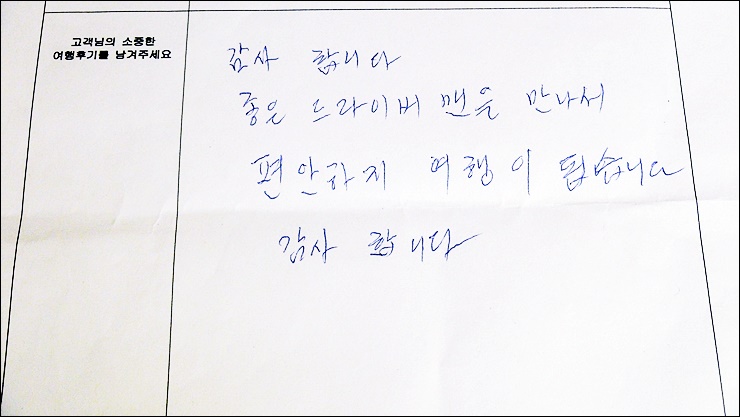 고객님의 소중한
여행후기를 남겨주세요
감사 합니다
좋은 드라이버 맨을 만나서
편안하지 여행이 됩습니다
감사 합니다